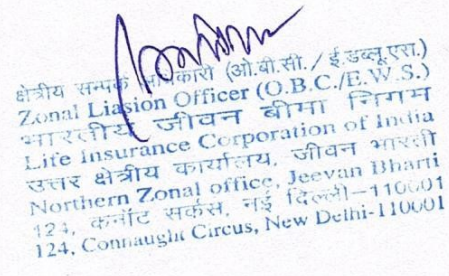 क्षेत्रीय सम्पर्क अधिकारी (ओ.बी.सी./ ई.डब्लू.एस.)
Zonal Liasion Officer (O.B.C./E.W.S.)
भारतीय जीवन बीमा निगम
Life Insurance Corporation of India
उत्तर क्षेत्रीय कार्यालय, जीवन भारती
Northern Zonal office, Jeevan Bharti
124, कनॉट सर्कस, नई दिल्ली-110001
124, Connaught Circus, New Delhi-110001